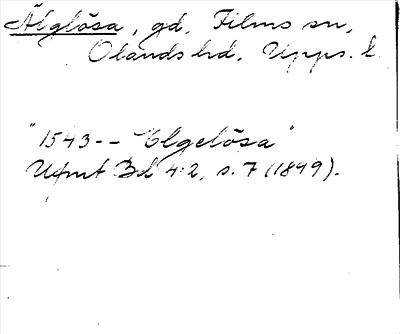 Älglösa, gd, Films sn,
Olands hd, Upps. l.
"1543-- Elgelösa"
Ufmt Bd 4:2, s. 7 (1899).